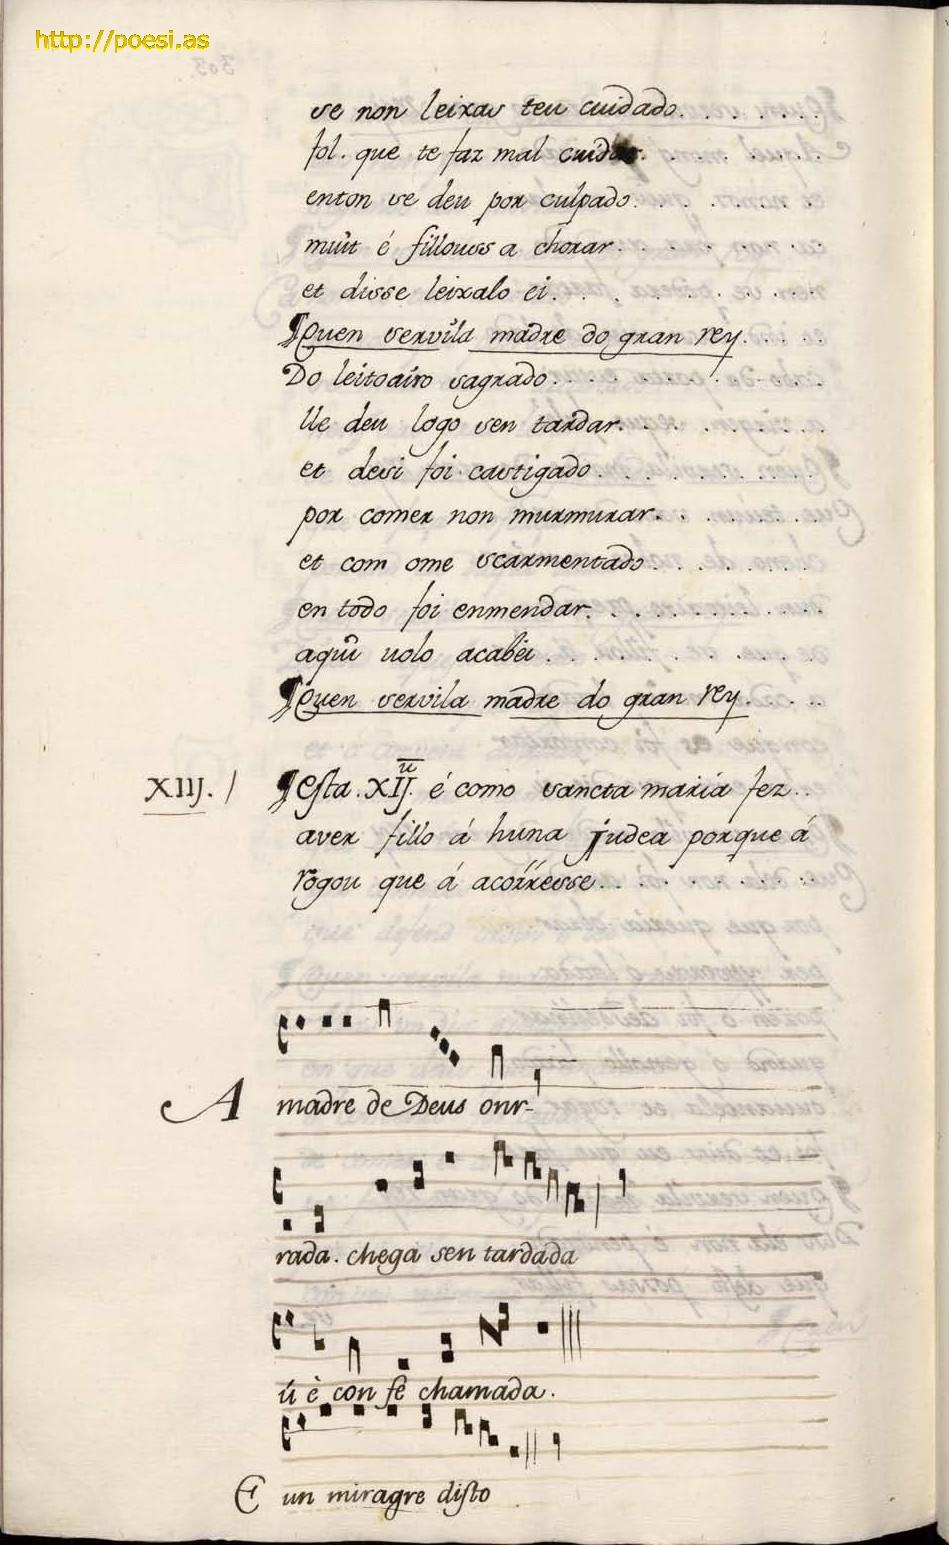 http://poesi.as
303
se non leixas teu cuidado
fol. que te faz mal cuidar.
enton se deu por culpado
muit é fillouss a chorar
et disse leixalo ei
Quen servila madre do gran rey
Do leitoairo sagrado
lle deu logo sen tardar
et desi foi castigado
por comer non murmurar
et com ome scarmentado
en todo foi enmendar
aqui uolo acabei
Quen servila madre do gran rey
XIIJ. / Esta. XIIJ. é como sancta maria fez
aver fillo á huna judea porque á
rogou que á acorresse
A madre de Deus onr-
rada. chega sen tardada
ú è con fe chamada.
E un miragre disto